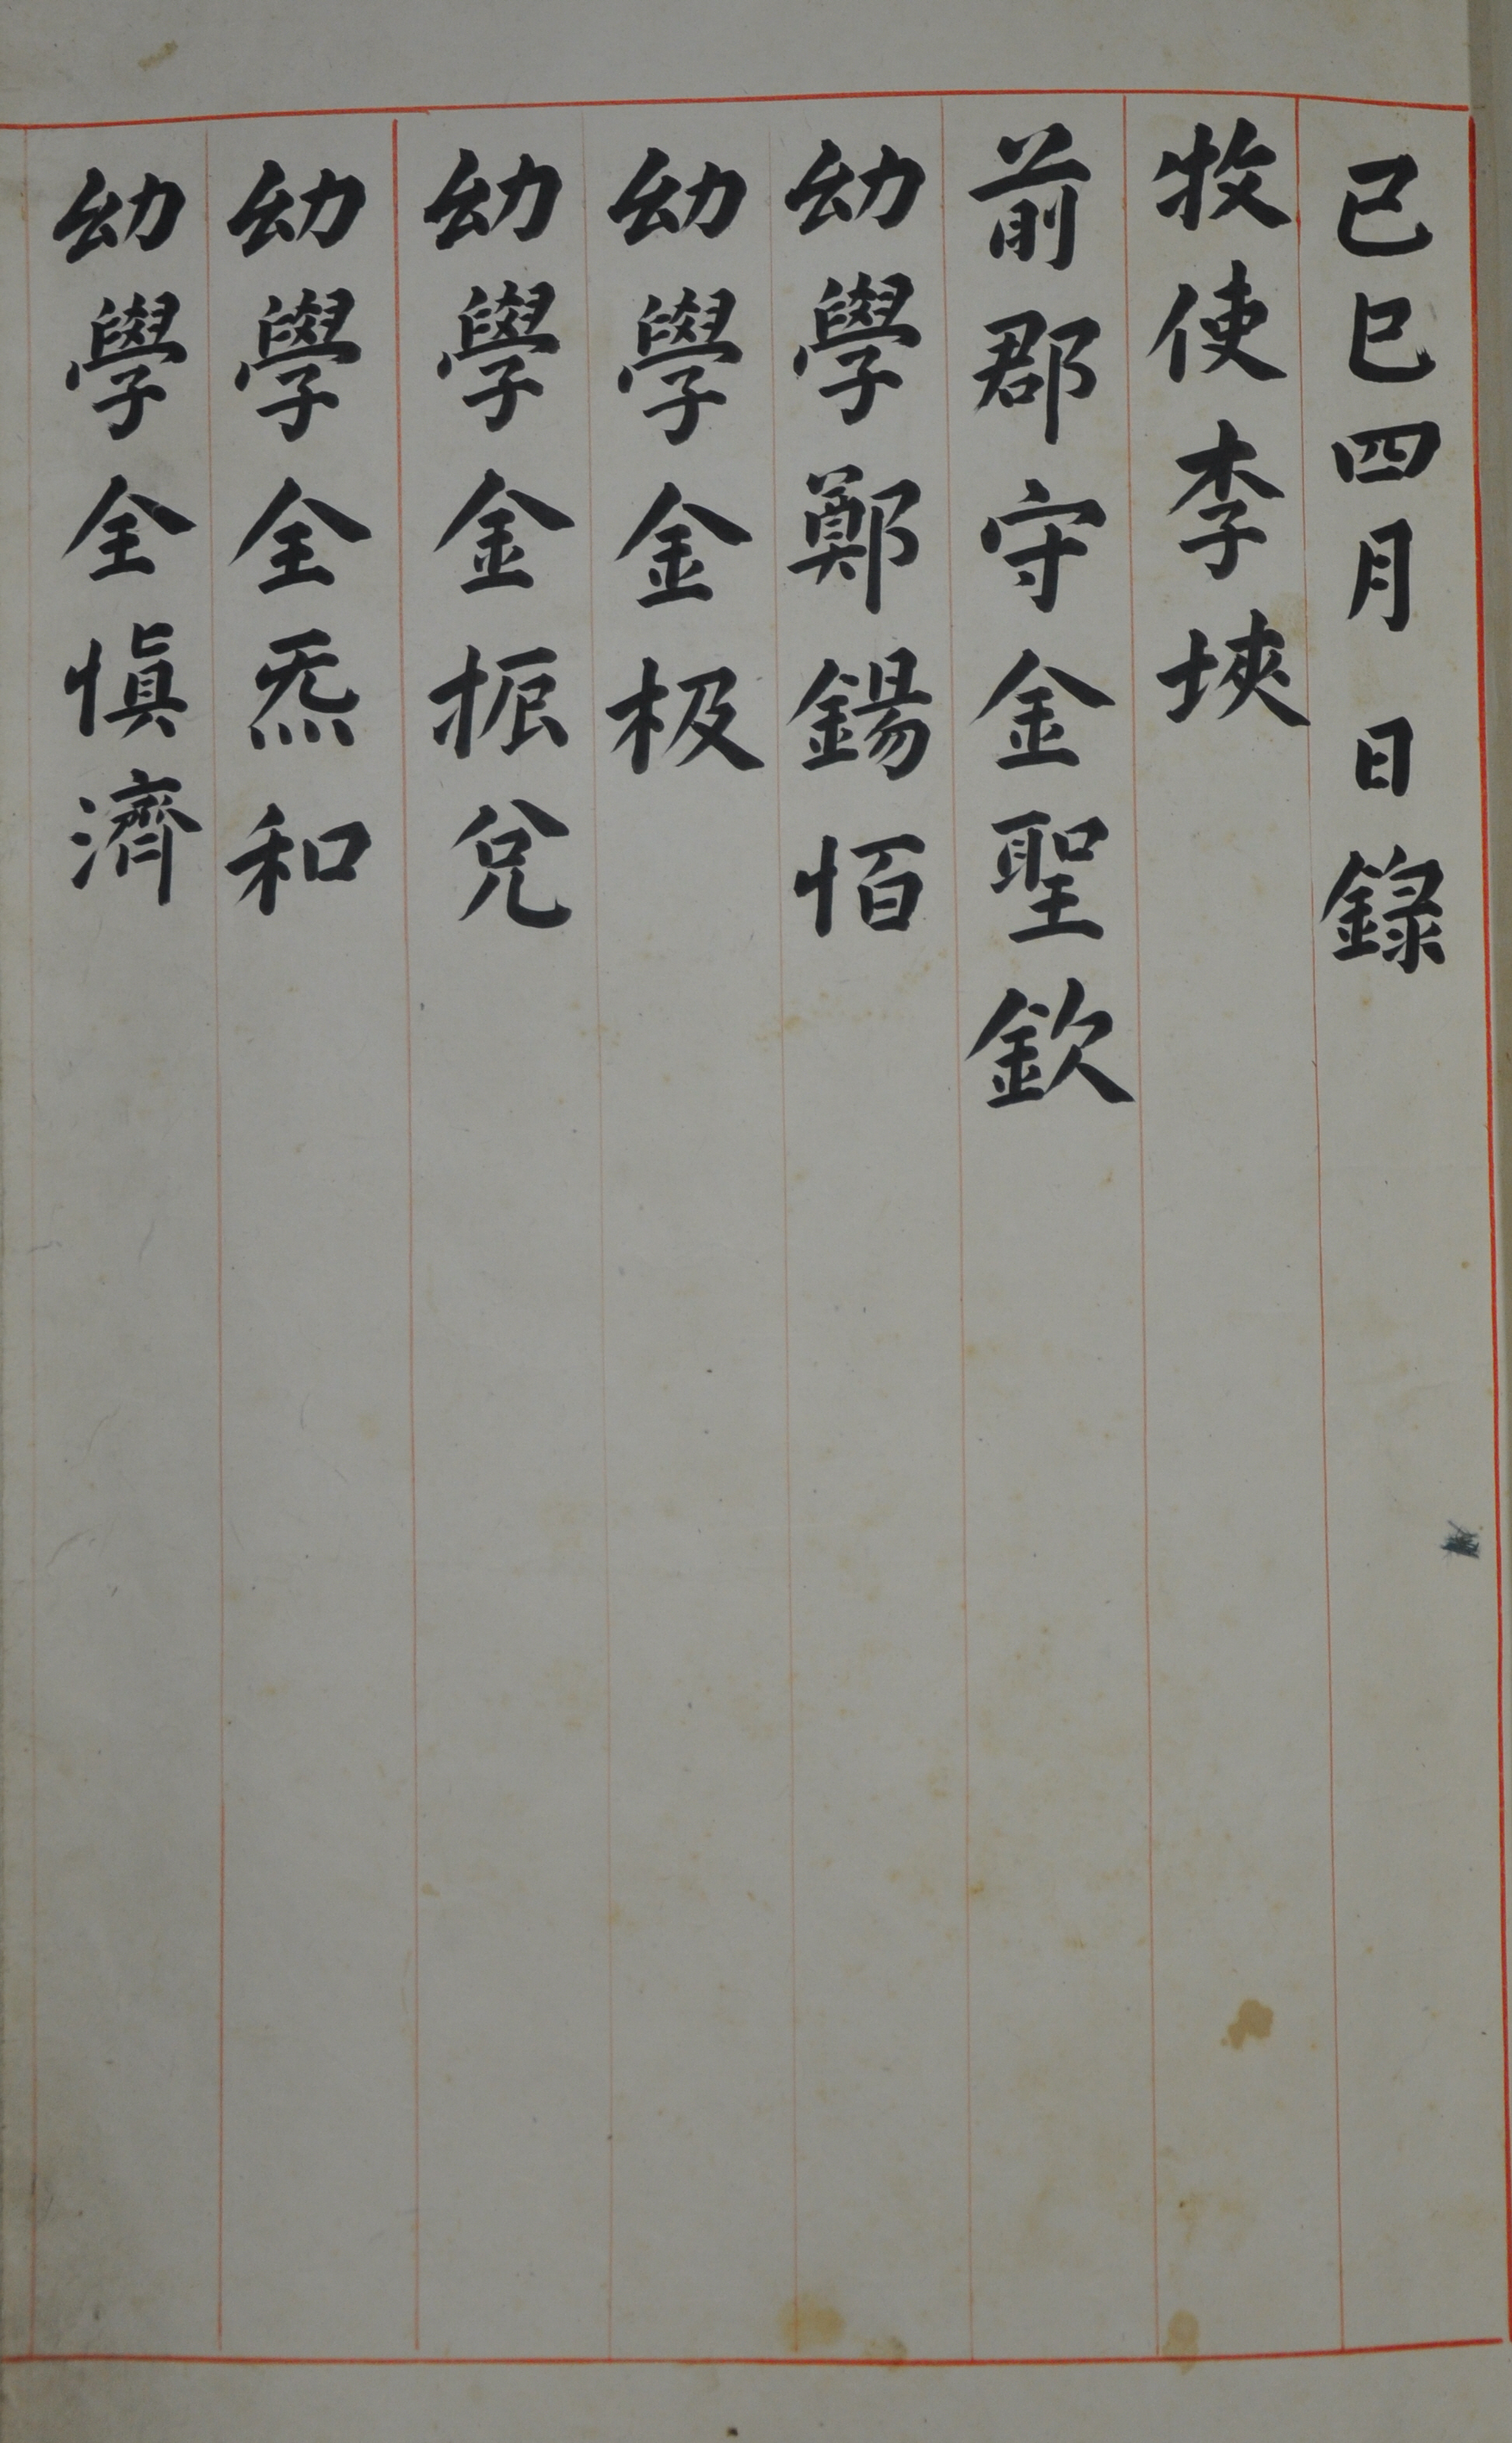 己巳四月 日錄
牧使李埉
前郡守金聖欽
幼學鄭鍚佰
幼學金极
幼學金振兌
幼學全炁和
幼學全愼濟